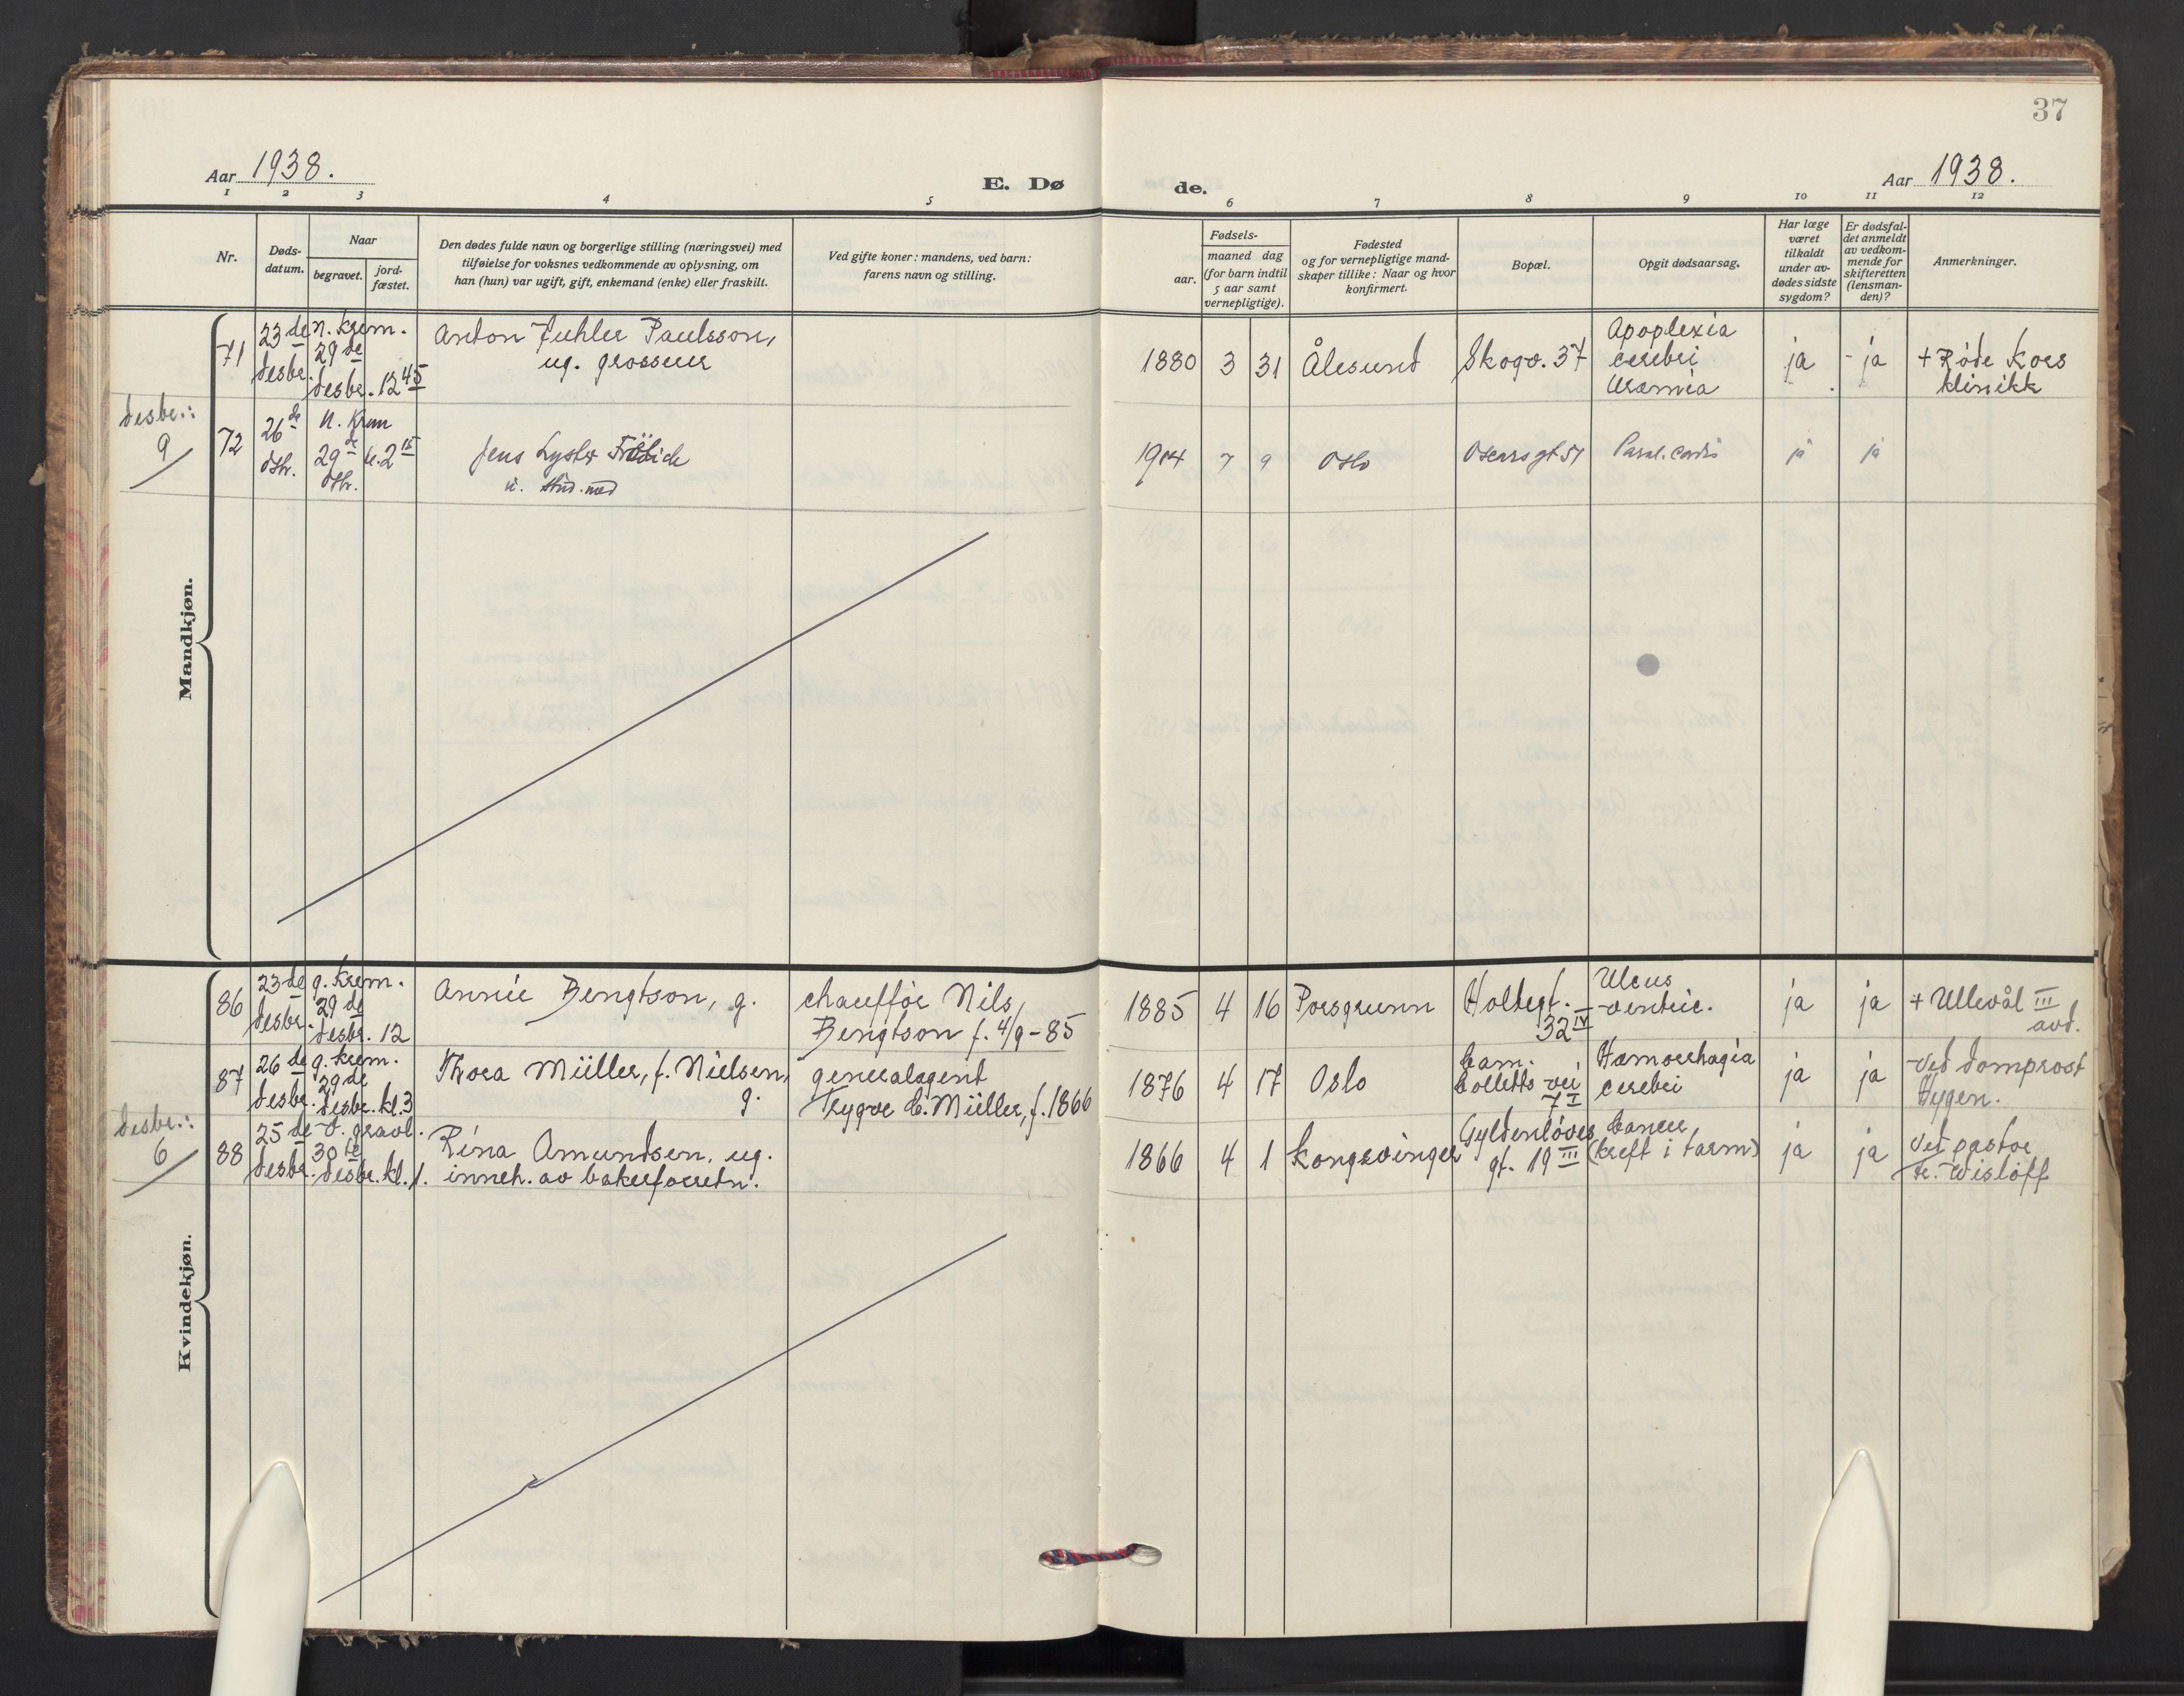 37
Aar 1938.
E. Dø
de.
Aar 1938.
1 2 3 4 5 6 7 8 9 10 11 12
Nr.
Døds-
datum.
Naar
begravet.
jord-
fæstet.
Den dødes fulde navn og borgerlige stilling (næringsvei) med
tilføielse for voksnes vedkommende av oplysning, om
han (hun) var ugift, gift, enkemand (enke) eller fraskilt.
Ved gifte koner: mandens, ved barn:
farens navn og stilling.
Fødsels-
aar.
maaned dag
(for barn indtil
5 aar samt
vernepligtige).
Fødested
og for vernepligtige mand-
skaper tillike: Naar og hvor
konfirmert.
Bopæl.
Opgit dødsaarsag.
Har læge
været
tilkaldt
under av-
dødes sidste
sygdom?
Er dødsfal-
det anmeldt
av vedkom-
mende for
skifteretten
(lensman-
den)?
Anmerkninger.
Mandkjøn.
71
23 de
desbr.
n. krem.
29 de
desbr. 12 45
Anton Juhler Paulsson,
ug. grosserer
1880 3 31 Ålesund
Skogv. 37
Apoplexia
cerebri
Uræmia
ja
ja
+ Røde Kors
klinikk
desbr.:
9
72
26 de
dsbr.
n. Krem
29 de kl. 2 15
dsbr.
Jens Lyster Frölich
u. stud. med
1914 7 9 Oslo
Oscarsgt 51
Paral. cordis
ja
ja
Kvindekjøn.
86
23 de
desbr.
g. krem.
29 de
desbr. 12
Annie Bengtson, g.
chauffør Nils
Bengtson f. 4/9-85
1885 4 16 Porsgrunn
Holtegt.
32 IV
Ulcus
ventric.
ja
ja
+ Ullevål III
avd.
87
26 de
desbr.
g. krem.
29 de
desbr. kl. 3
Thora Müller, f. Nielsen,
g.
generalagent
Trygve C. Müller, f. 1866
1876 4 17 Oslo
Cam.
Colletts vei
7 I
Hæmorrhagia
cerebri
ja
ja
Ved domprost
Hygen.
desbr.:
6
88
25 de
desbr.
v. gravl.
30 te
desbr. kl. 1.
Rina Amundsen, ug.
inneh. av bakerforretn.
1866 4 1 Kongsvinger
Gyldenløves
gt. 19 III
Cancer
(kreft i tarm)
ja
ja
Ved pastor
Fr. Wisløff